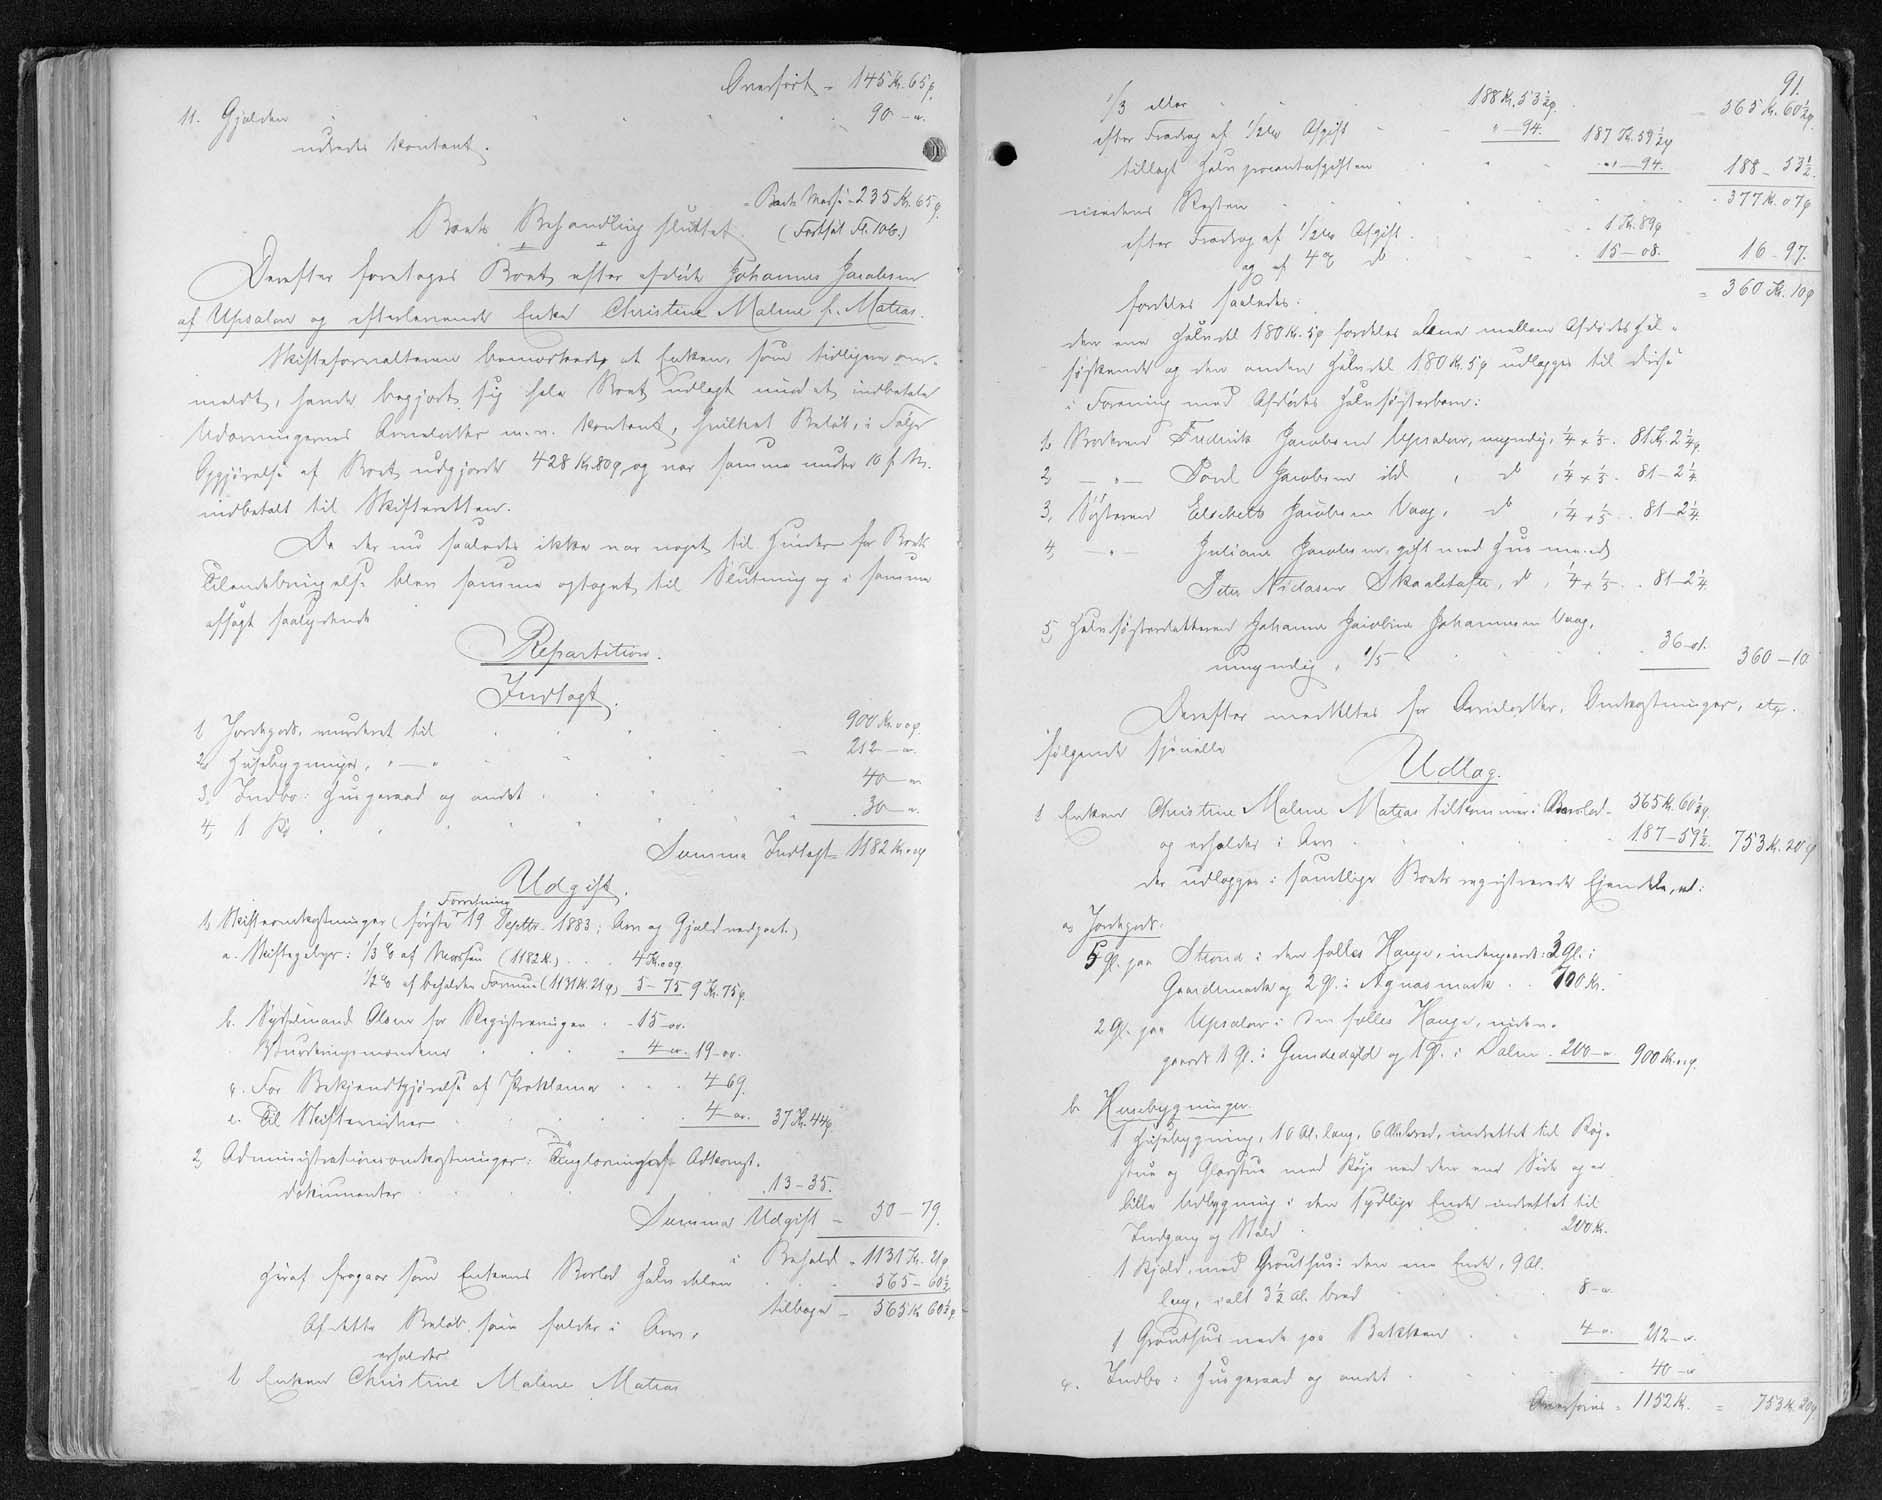 Overført - 145 Kr. 65 ø.
11. Gjælden 90 - "
udredes kontant.
Boets Masse - 235 Kr. 65 ø.
Boets Behandling sluttet. (Fortsat Fl. 106.)
Derefter foretoges Boet efter afdøde Johannes Jacobsen
af Upsalen og efterlevende Enke Christine Malene f. Matras.
Skifteforvalteren bemærkede, at Enken, som tidligere om-
meldt, havde begjært sig hele Boet udlagt mod at indbetale
Udarvingernes Arvelodder m. v. kontant, hvilket Beløb, i Følge
Opgjørelse af Boet udgjorde 428 Kr. 80 ø, og var samme under 10 f. M.
indbetalt til Skifteretten.
Da der nu saaledes ikke var noget til Hinder for Boets
Tilendebringelse blev samme optaget til Slutning og i samme
afsagt saalydende
Repartition.
Indtægt.
1, Jordegods, vurderet til 900 Kr. 00 ø.
2, Husebygninger, " — " 212 — "
3, Indbo: Husgeraad og andet 40 — "
4, 1 Ko 30 — "
Summa Indtægt = 1182 Kr. 00 ø
Udgift.
1, Skifteomkostninger (første Forretning 19 Septbr. 1883; Arv og Gjæld vedgaaet.)
a. Skiftegebyr: 1/3 % af Massen (1182 K.) 4 Kr. 00 ø
1/2 % af beholden Formue (1131 K. 21 ø) 5 - 75 9 Kr. 75 ø.
b. Sysselmand Olsen for Registreringen - 15 - 00.
Vurderingsmændene 4 - 00. 19 - 00.
c. For Bekjendtgjørelse af Proklama 4 69.
d. Til Skiftevidner 4 - 00. 37 Kr. 44 ø
2, Administrationsomkostninger: Tinglæsning af Adkomst-
dokumenter 13 - 35.
Summa Udgift - 50 - 79.
i Behold - 1131 Kr. 21 ø
Heraf fragaar som Enkens Boslod Halvdelen 565 - 60 1/2
tilbage - 565 K 60 1/2 ø
Af dette Beløb, som falder i Arv,
erholder
1, Enken Christine Malene Matras
91.
1/3 eller 188 Kr. 53 1/2 ø. - 565 Kr. 60 1/2 ø.
efter Fradrag af 1/2% Afgift " - 94. 187 Kr. 59 1/2 ø
tillagt Halvprocentafgiften " - 94. 188 - 53 1/2.
medens Resten - 377 Kr. 07 ø
efter Fradrag af 1/2% Afgift 1 Kr. 89 ø
og af 4% do 15 - 08. 16 - 97.
= 360 Kr. 10 ø
fordeles saaledes:
den ene Halvdel 180 Kr. 5 ø fordeles alene mellem Afdødes Hel-
søskende og den anden Halvdel 180 Kr. 5 ø udlægges til disse
i Forening med Afdødes Halvsøsterbarn:
1, Broderen Fredrik Jacobsen Upsalen, myndig, 1/4 + 1/5 . 81 Kr. 2 1/4 ø.
2, — " — Poul Jacobsen ibd , do , 1/4 + 1/5 . 81 - 2 1/4
3, Søsteren Elsebeth Jacobsen Vaag, do , 1/4 + 1/5 . 81 - 2 1/4.
4, — " — Juliane Jacobsen, gift med Husmand
Peter Niclasen Skaaletofte, do , 1/4 + 1/5 . 81 - 2 1/4.
5, Halvsøsterdatteren Johanne Jacobine Johannesen Vaag,
umyndig, 1/5 36 - 01. 360 - 10.
Derefter meddeltes for Arvelodder, Omkostninger, etc.
følgende specielle
Udlæg.
1 Enken Christine Malene Matras tilkommer: Boslod - 565 K. 60 1/2 ø.
og erholder i Arv - 187 - 59 1/2. 753 K. 20 ø
der udlægges i samtlige Boets registrerede Ejendele, nl:
a, Jordegods.
5 Gl. paa i den fælles Hauge, indengaards: 3 Gl. i
og 2 Gl. i 700 Kr.
2 Gl. paa Upsalen i den fælles Hauge, inden-
gaards 1 Gl. i og 1 Gl. i 200 - " 900 Kr. 00 ø.
b. Husebygninger.
1 Husebygning, 10 Al. lang, 6 Al. bred, indrettet til Røg-
stue og Glasstue med Køje ved den ene Side og en
lille Udbygning i den sydlige Ende indrettet til
Indgang og Stald 200 Kr.
1 Hjald, med Grouthus i den ene Ende, 9 Al.
lang, ialt 3 1/2 Al. bred 8 - "
1 Grouthus nede paa Bakken 4 - " 212 - "
c. Indbo: Husgeraad og andet 40 - "
Overføres = 1152 Kr. = 753 K. 20 ø